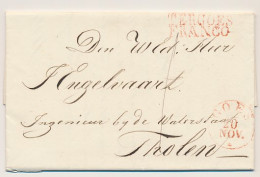 TERGOES
FRANCO
Den Wel Ed. Heer
J Engelvaart
Ingenieur by de Waterstaat
Tholen
20
NOV